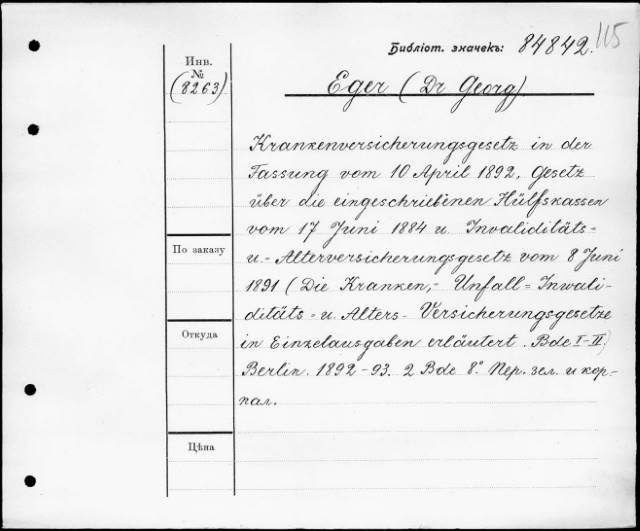 Библіот. значекъ: 84842.
115
Инв.
№
(8263)
Eger (Dr Georg)
Krankenversicherungsgesetz in der
Fassung vom 10 April 1892, Gesetz
über die eingeschriebenen Hülfskassen
vom 17 Juni 1884 u. Invaliditäts=
u.- Alterversicherungsgesetz vom 8 Juni
По заказу
1891 (Die Kranken,- Unfall= Inwali-
ditäts= u. Alters- Versicherungsgesetze
Откуда
in Einzelausgaben erläutert. Bde I-II.)
Berlin. 1892-93. 2 Bde 8.° Пер. зел. и кор-
пал.
Цѣна